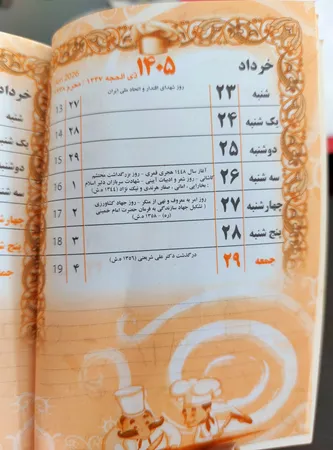 خرداد
۱۴۰۵
ذی الحجه ۱۴۴۷ / محرم
2026
شنبه ۲۳ روز شهدای اقتدار و اتحاد ملی ایران ۲۷ 13
یک شنبه ۲۴ ۲۸ 14
دوشنبه ۲۵ ۲۹ 15
سه شنبه ۲۶ ۱ 16
آغاز سال ۱۴۴۸ هجری قمری - روز بزرگداشت محتشم
کاشانی - روز شعر و ادبیات آیینی - شهادت سربازان دلیر اسلام
: بخارایی ، امانی ، صفار هرندی و نیک نژاد (۱۳۴۴ ه.ش)
چهارشنبه ۲۷ ۲ 17
روز امر به معروف و نهی از منکر - روز جهاد کشاورزی
( تشکیل جهاد سازندگی به فرمان حضرت امام خمینی
(ره) - ۱۳۵۸ ه.ش)
پنج شنبه ۲۸ ۳ 18
جمعه ۲۹ درگذشت دکتر علی شریعتی (۱۳۵۶ ه.ش) ۴ 19
خرداد
شنبه
یک شنبه